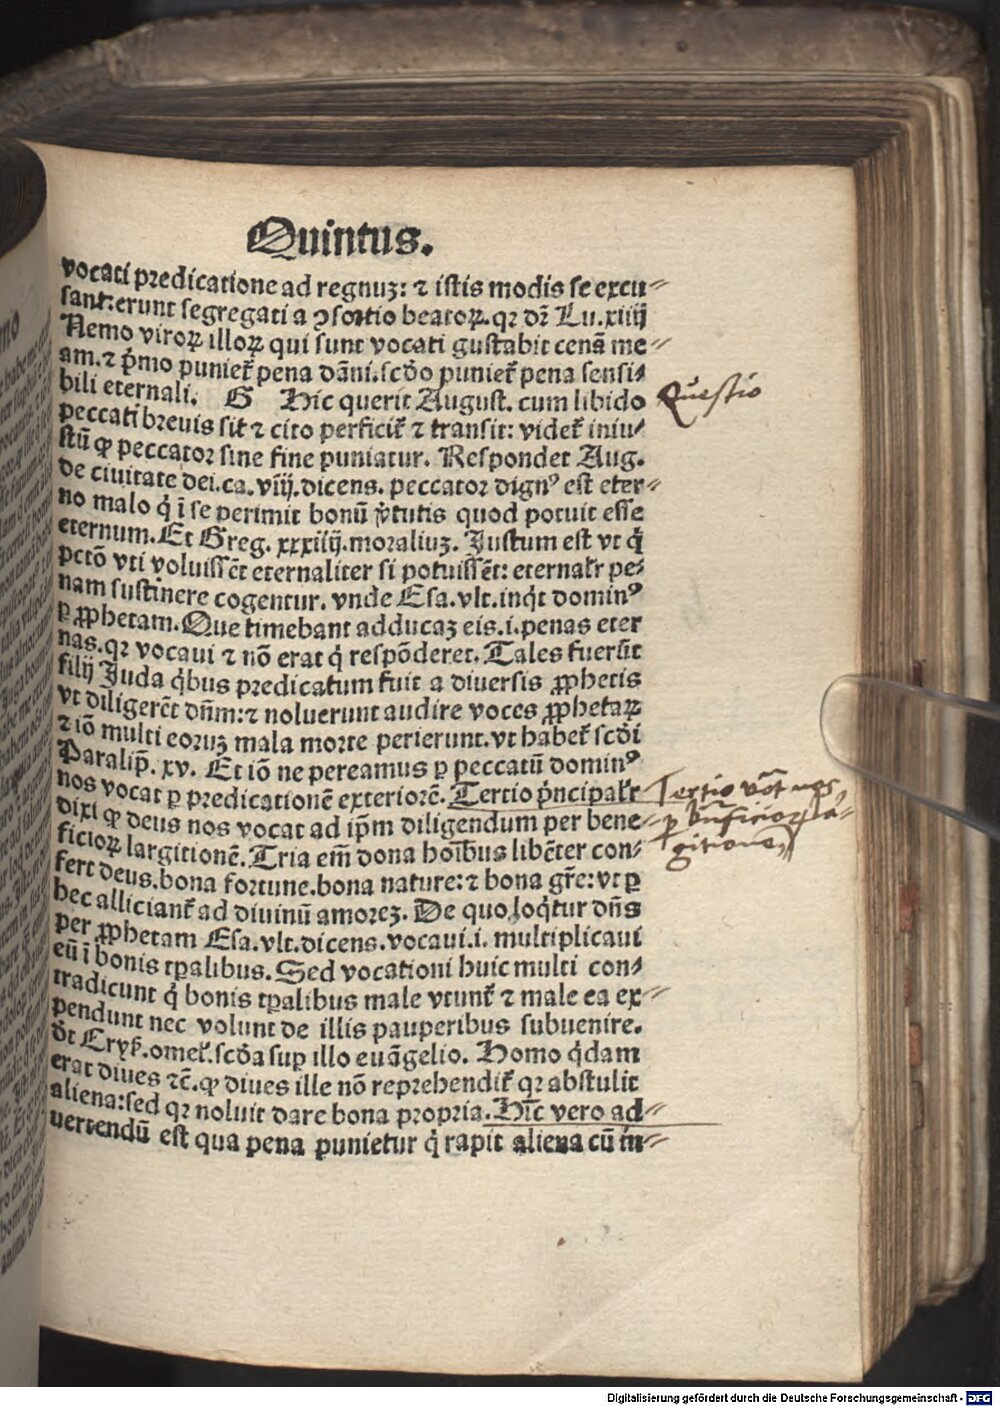 Quintus.
vocati predicatione ad regnuꝫ: ⁊ istis modis se excu⸗
sant: erunt segregati a ꝯsortio beatoꝝ. qꝛ dr̄ Lu. xiiij
Nemo viroꝝ illoꝝ qui sunt vocati gustabit cenā me⸗
am. ⁊ p̄mo puniet᷑ pena dāni. scd̄o puniet᷑ pena sensi⸗
bili eternali. G Hic querit August. cum libido
peccati breuis sit ⁊ cito perficit᷑ ⁊ transit: videt᷑ iniu⸗
stū ꝙ peccator sine fine puniatur. Respondet Aug.
de ciuitate dei. ca. viij. dicens. peccator dignꝰ est eter⸗
no malo q̇ ī se perimit bonū v̓tutis quod potuit esse
eternum. Et Greg. xxxiiij. moraliuꝫ. Justum est vt q̇
pctō vti voluissēt eternaliter si potuissēt: eternalr̄ pe⸗
nam sustinere cogentur. vnde Esa. vlt. inq̇t dominꝰ
ꝑ ꝓphetam. Que timebant adducaꝫ eis. i. penas eter
nas. qꝛ vocaui ⁊ nō erat q̇ respōderet. Tales fuerūt
filij Juda q̇bus predicatum fuit a diuersis ꝓphetis
vt diligerēt dn̄m: ⁊ noluerunt audire voces ꝓphetaꝝ
⁊ iō multi eoruꝫ mala morte perierunt. vt habet᷑ scd̄i
Paralip̄. xv. Et iō ne pereamus ꝑ peccatū dominꝰ
nos vocat ꝑ predicationē exteriorē. Tertio p̄ncipalr̄
dixi ꝙ deus nos vocat ad ip̄m diligendum per bene⸗
ficioꝝ largitionē. Tria em̄ dona hoībus libēter con⸗
fert deus. bona fortune. bona nature: ⁊ bona gr̄e: vt ꝑ
hec alliciant᷑ ad diuinū amoreꝫ. De quo loq̇tur dn̄s
per ꝓphetam Esa. vlt. dicens. vocaui. i. multiplicaui
eū ī bonis tꝑalibus. Sed vocationi huic multi con⸗
tradicunt q̇ bonis tꝑalibus male vtunt᷑ ⁊ male ea ex⸗
pendunt nec volunt de illis pauperibus subuenire.
vt Crys. omel᷑. scd̄a suꝑ illo euāgelio. Homo q̇dam
erat diues ⁊c̄. ꝙ diues ille nō reprehendit᷑ qꝛ abstulit
aliena: sed qꝛ noluit dare bona propria. Hīc vero ad⸗
uertendū est qua pena punietur q̇ rapit aliena cū in⸗
Questio
Tertio vo᷑t nos
ꝑ bn̄ficioꝝ la⸗
gitionem
Digitalisierung gefördert durch die Deutsche Forschungsgemeinschaft - DFG